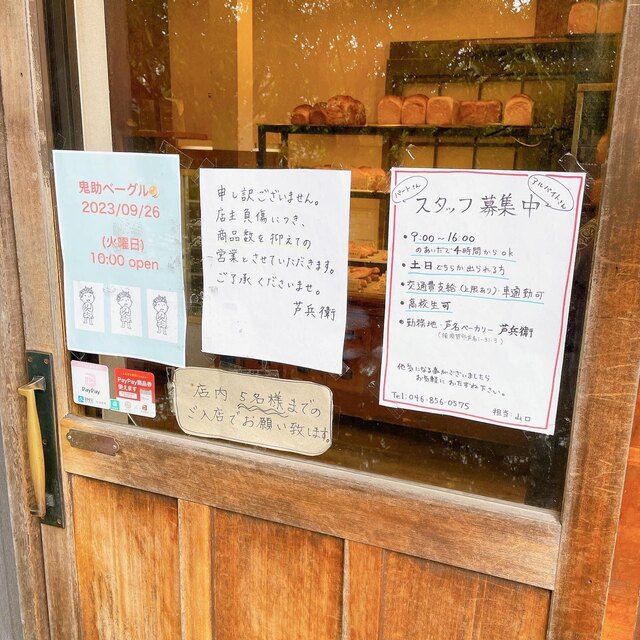 鬼助ベーグル
2023/09/26
(火曜日)
10:00 open
PayPay
PayPay商品券
使えます
申し訳ございません。
店主負傷につき、
商品数を抑えての
営業とさせていただきます。
ご了承くださいませ。
芦兵衛
店内 5名様までの
ご入店でお願い致します。
パートさん
アルバイトさん
スタッフ募集中
・9:00~16:00
のあいだで4時間からok
・土日どちらか出られる方
・交通費支給(上限あり)・車通勤可
・高校生可
・勤務地:芦名ベーカリー 芦兵衛
他気になる事がございましたら
お気軽におたずね下さい。
Tel:046-856-0575
担当:山口